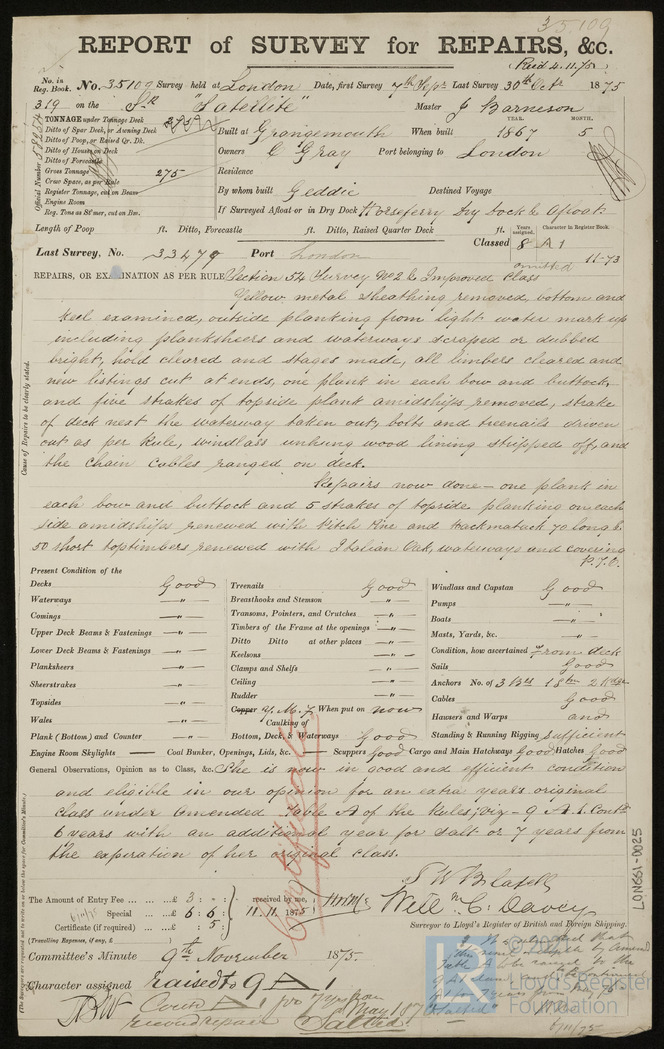 35109
REPORT of SURVEY for REPAIRS, &c.
(Recd 4.11.75)
No. in Reg. Book. No. 35109 Survey held at London Date, first Survey 7th Sept Last Survey 30th Oct 1875
319 on the "Satellite" Master J Barneson
TONNAGE under Tonnage Deck
Ditto of Spar Deck, or Awning Deck
Ditto of Poop, or Raised Qr. Dk.
Ditto of Houses on Deck
Ditto of Forecastle
Gross Tonnage 275
Crew Space, as per Rule
Register Tonnage, cut on Beam
Engine Room
Reg. Tons as St'mer, cut on Bm.
Official Number
YEAR. MONTH.
Built at Grangemouth When built 1867 5
Owners C Gray Port belonging to London
Residence
By whom built Geddie Destined Voyage
If Surveyed Afloat or in Dry Dock Horseferry Dry Dock & Afloat
Length of Poop ft. Ditto, Forecastle ft. Ditto, Raised Quarter Deck ft.
Years assigned. Character in Register Book.
Last Survey, No. 33479 Port London Classed 8 A 1
omitted 11-73
REPAIRS, OR EXAMINATION AS PER RULE Section 54 Survey No 2 & Improved Class
Yellow metal sheathing removed, bottom and
keel examined, outside planking from light water mark up
including planksheers and waterways scraped or dubbed
bright, hold cleared and stages made, all limbers cleared and
new listings cut at ends, one plank in each bow and buttock,
and five strakes of topside plank amidships removed, strake
of deck next the waterway taken out, bolts and treenails driven
out as per Rule, windlass unhung wood lining stripped off, and
the chain cables ranged on deck.
Repairs now done - one plank in
each bow and buttock and 5 strakes of topside planking on each
side amidships renewed with Pitch Pine and Hackmatack 70 long &
50 short toptimbers renewed with Italian Oak, waterways and covering
P.T.O.
Cause of Repairs to be clearly stated.
Present Condition of the
Decks Good
Waterways — " —
Comings — " —
Upper Deck Beams & Fastenings — " —
Lower Deck Beams & Fastenings — " —
Planksheers — " —
Sheerstrakes — " —
Topsides — " —
Wales — " —
Plank (Bottom) and Counter — " —
Treenails Good
Breasthooks and Stemson — " —
Transoms, Pointers, and Crutches — " —
Timbers of the Frame at the openings — " —
Ditto Ditto at other places — " —
Keelsons — " —
Clamps and Shelfs — " —
Ceiling — " —
Rudder — " —
Copper Y.M.7 When put on now
Caulking of
Bottom, Deck, & Waterways Good
Windlass and Capstan Good
Pumps — " —
Boats — " —
Masts, Yards, &c. — " —
Condition, how ascertained From deck
Sails Good
Anchors No. of 3 Brs 1 Stm 2 Kedge
Cables Good
Hawsers and Warps and
Standing & Running Rigging sufficient
Engine Room Skylights — Coal Bunker, Openings, Lids, &c. — Scuppers Good Cargo and Main Hatchways Good Hatches Good
General Observations, Opinion as to Class, &c. She is now in good and efficient condition
and eligible in our opinion for an extra year's original
class under Amended Table A of the Rules; viz - 9 A.1. Contd
6 years with an additional year for Salt or 7 years from
the expiration of her original class.
The Amount of Entry Fee ... ...£ 3 : - :
Special ... ...£ 6 : 6 :
Certificate (if required) ...£ : 5 :
(Travelling Expenses, if any, £ )
6/11/75
received by me,
11.11. 1875
Will m C. Davey
Surveyor to Lloyd's Register of British and Foreign Shipping.
Committee's Minute 9th November 1875.
Character assigned raised to 9 A 1
Contd A 1 for 7 yrs from
May 187
second repair Salted
"Salted"
6/11/75
LON651-0025
LR
Lloyd's Register
Foundation